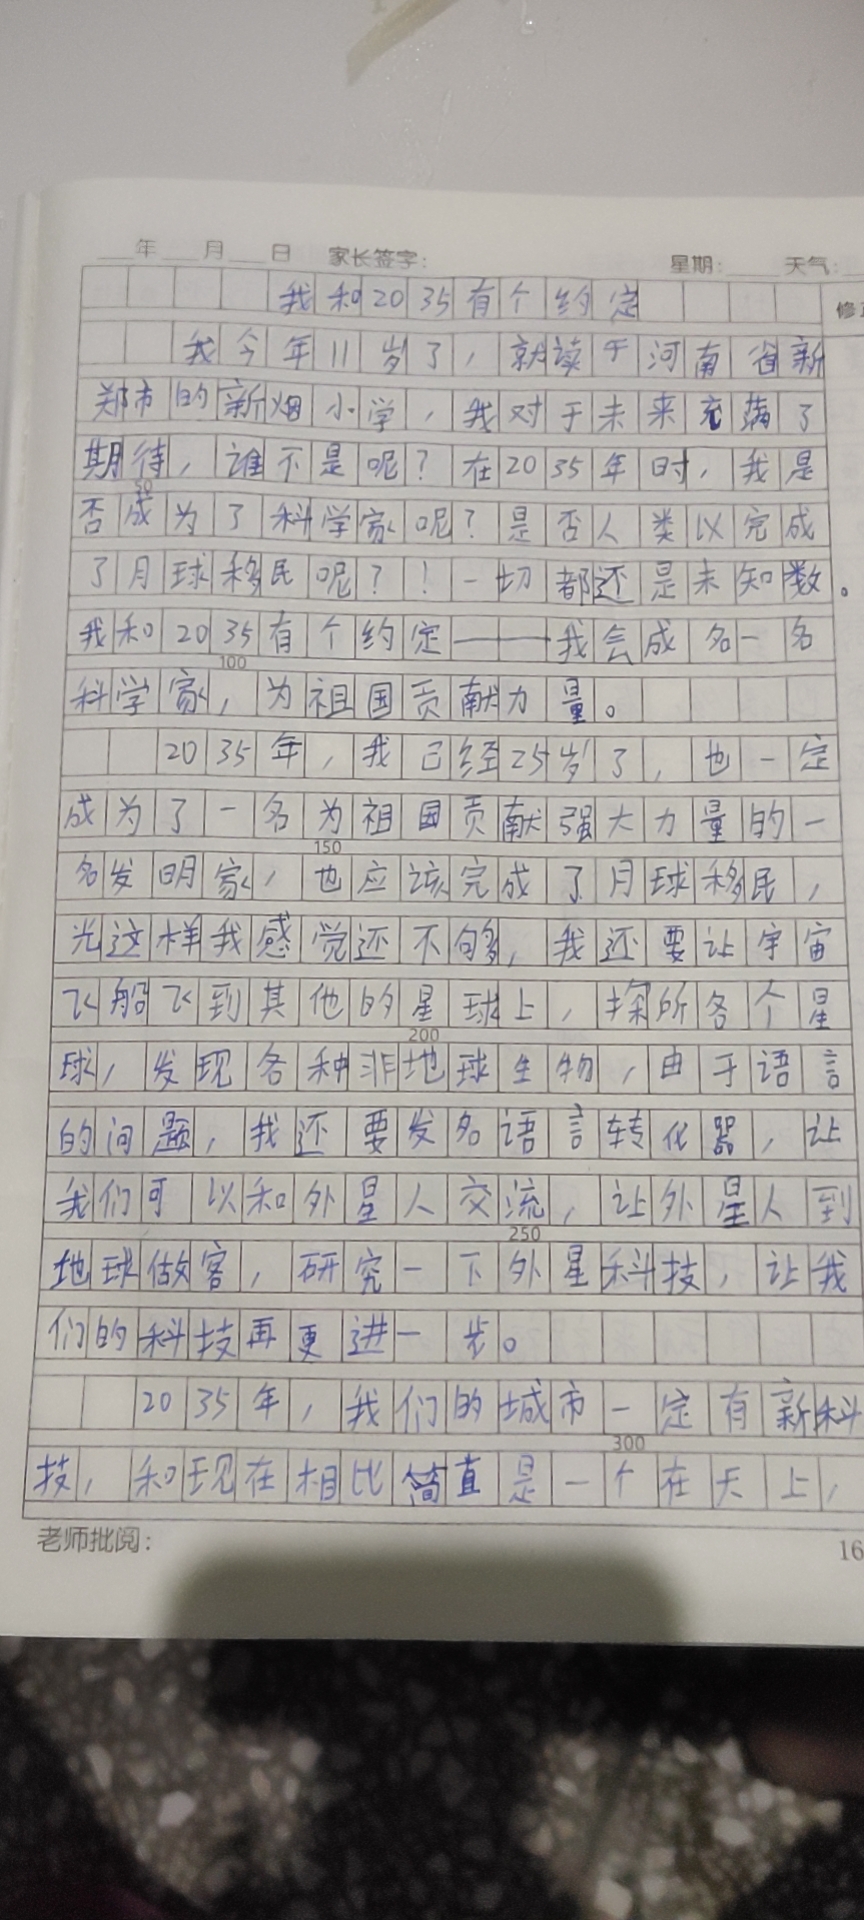 年 月 日 家长签字： 星期： 天气：
我和2035有个约定
修正
我今年11岁了，就读于河南省新
郑市的新烟小学，我对于未来充满了
期待，谁不是呢？在2035年时，我是
50
否成为了科学家呢？是否人类以完成
了月球移民呢？！一切都还是未知数。
我和2035有个约定——我会成名一名
100
科学家，为祖国贡献力量。
2035年，我已经25岁了，也一定
成为了一名为祖国贡献强大力量的一
150
名发明家，也应该完成了月球移民，
光这样我感觉还不够，我还要让宇宙
飞船飞到其他的星球上，探所各个星
200
球，发现各种非地球生物，由于语言
的问题，我还要发名语言转化器，让
我们可以和外星人交流，让外星人到
250
地球做客，研究一下外星科技，让我
们的科技再更进一步。
2035年，我们的城市一定有新科
300
技，和现在相比简直是一个在天上，
老师批阅：
16